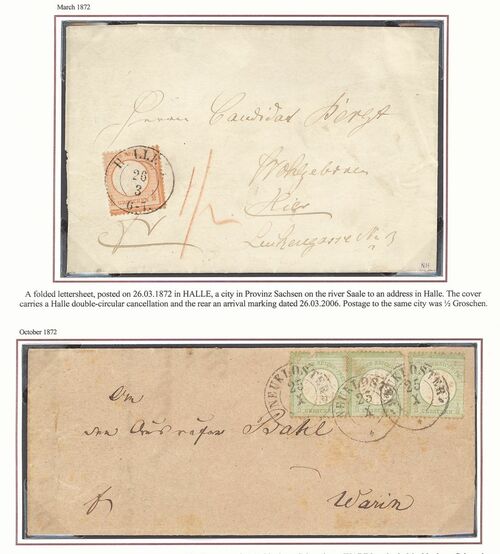 March 1872
Herrn Candidat Bergt
Wohlgeboren
Hier
HALLE
26
3
6-7.
1/2
NH
A folded lettersheet, posted on 26.03.1872 in HALLE, a city in Provinz Sachsen on the river Saale to an address in Halle. The cover
carries a Halle double-circular cancellation and the rear an arrival marking dated 26.03.2006. Postage to the same city was ½ Groschen.
October 1872
NEUKLOSTER
25
X
NEUKLOSTER
25
X
NEUKLOSTER
25
X
An
den Ausrufer Bahl
Warin